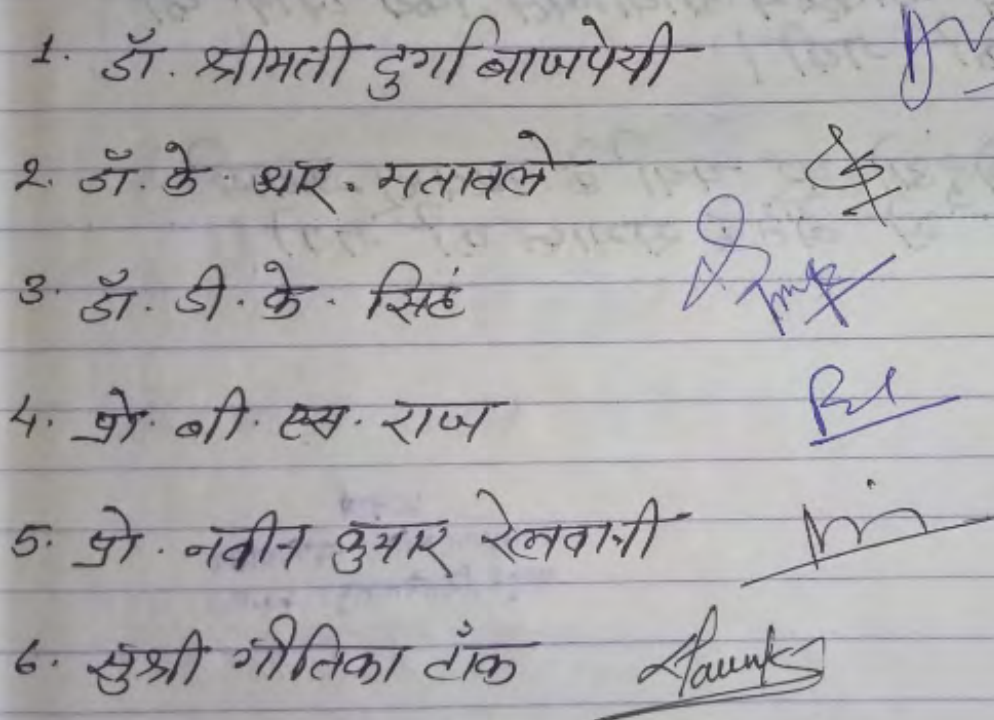 1. डॉ. श्रीमती दुर्गा बाजपेयी
2. डॉ. के. आर. मतावले
3. डॉ. डी. के. सिहं
4. प्रो. बी. एस. राज
5. प्रो. नवीन कुमार रेलवानी
6. सुश्री गीतिका टाँक